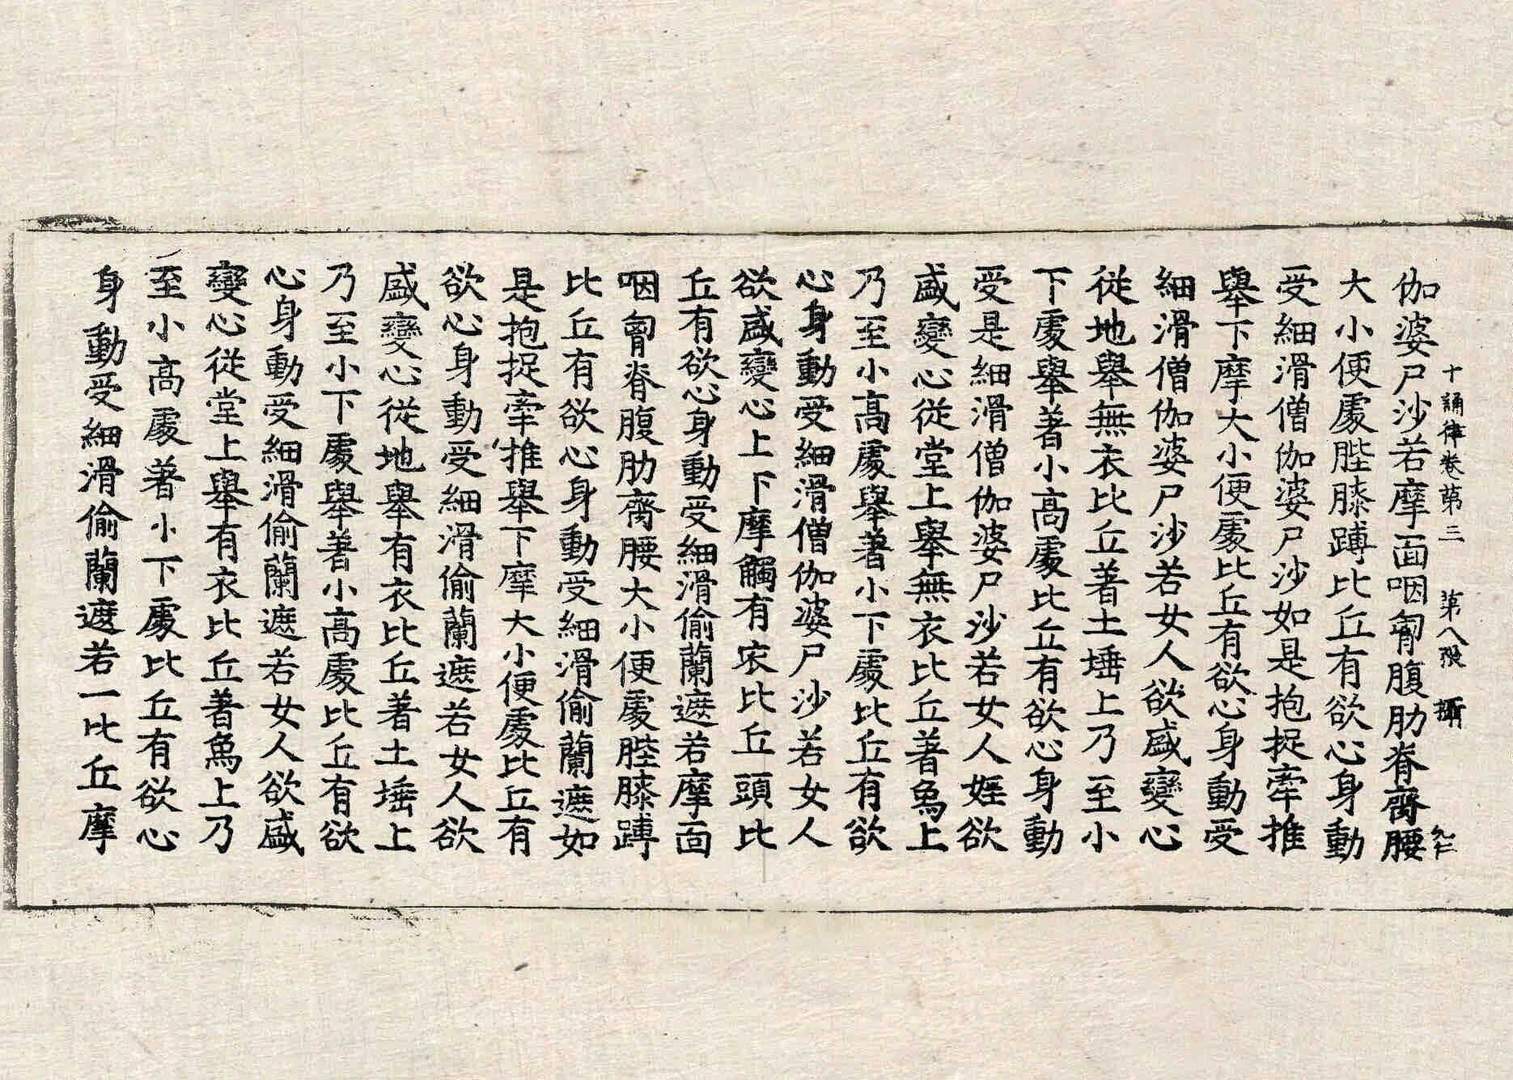 十誦律卷第三　第八張　攝
伽婆尸沙若摩面咽匈腹肋脊齊腰
大小便處䏶膝䏝比丘有欲心身動
受細滑僧伽婆尸沙如是抱捉牽推
舉下摩大小便處比丘有欲心身動受
細滑僧伽婆尸沙若女人欲盛變心
従地舉無衣比丘著土埵上乃至小
下處舉著小高處比丘有欲心身動
受是細滑僧伽婆尸沙若女人婬欲
盛變心従堂上舉無衣比丘著象上
乃至小高處舉著小下處比丘有欲
心身動受細滑僧伽婆尸沙若女人
欲盛變心上下摩觸有衣比丘頭比
丘有欲心身動受細滑偷蘭遮若摩面
咽匈脊腹肋齊腰大小便處䏶膝䏝
比丘有欲心身動受細滑偷蘭遮如
是抱捉牽推舉下摩大小便處比丘有
欲心身動受細滑偷蘭遮若女人欲
盛變心従地舉有衣比丘著土埵上
乃至小下處舉著小高處比丘有欲
心身動受細滑偷蘭遮若女人欲盛
變心従堂上舉有衣比丘著象上乃
至小高處著小下處比丘有欲心
身動受細滑偷蘭遮若一比丘摩